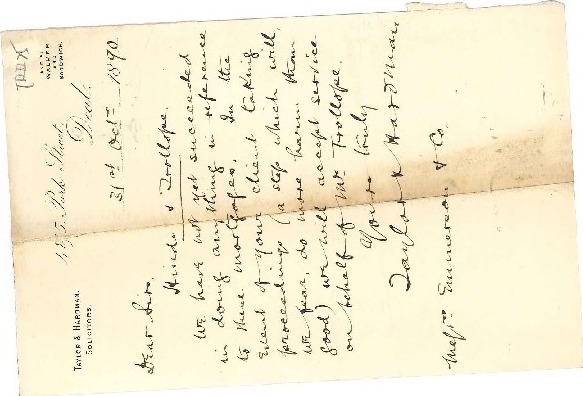 TAYLOR & HARDMAN.
SOLICITORS.
AND AT
WALMER
AND
SANDWICH.
5, Park Street,
Deal.
31st Octr 1890
Dear Sirs,
Hinds & Trollope.
We have not yet succeeded
in doing anything in reference
to these mortgages. In the
event of your client taking
proceedings (a step which will,
we fear, do more harm than
good) we will accept service
on behalf of Mr Trollope.
Yours truly
Taylor & Hardman
Messrs Emmerson & Co.